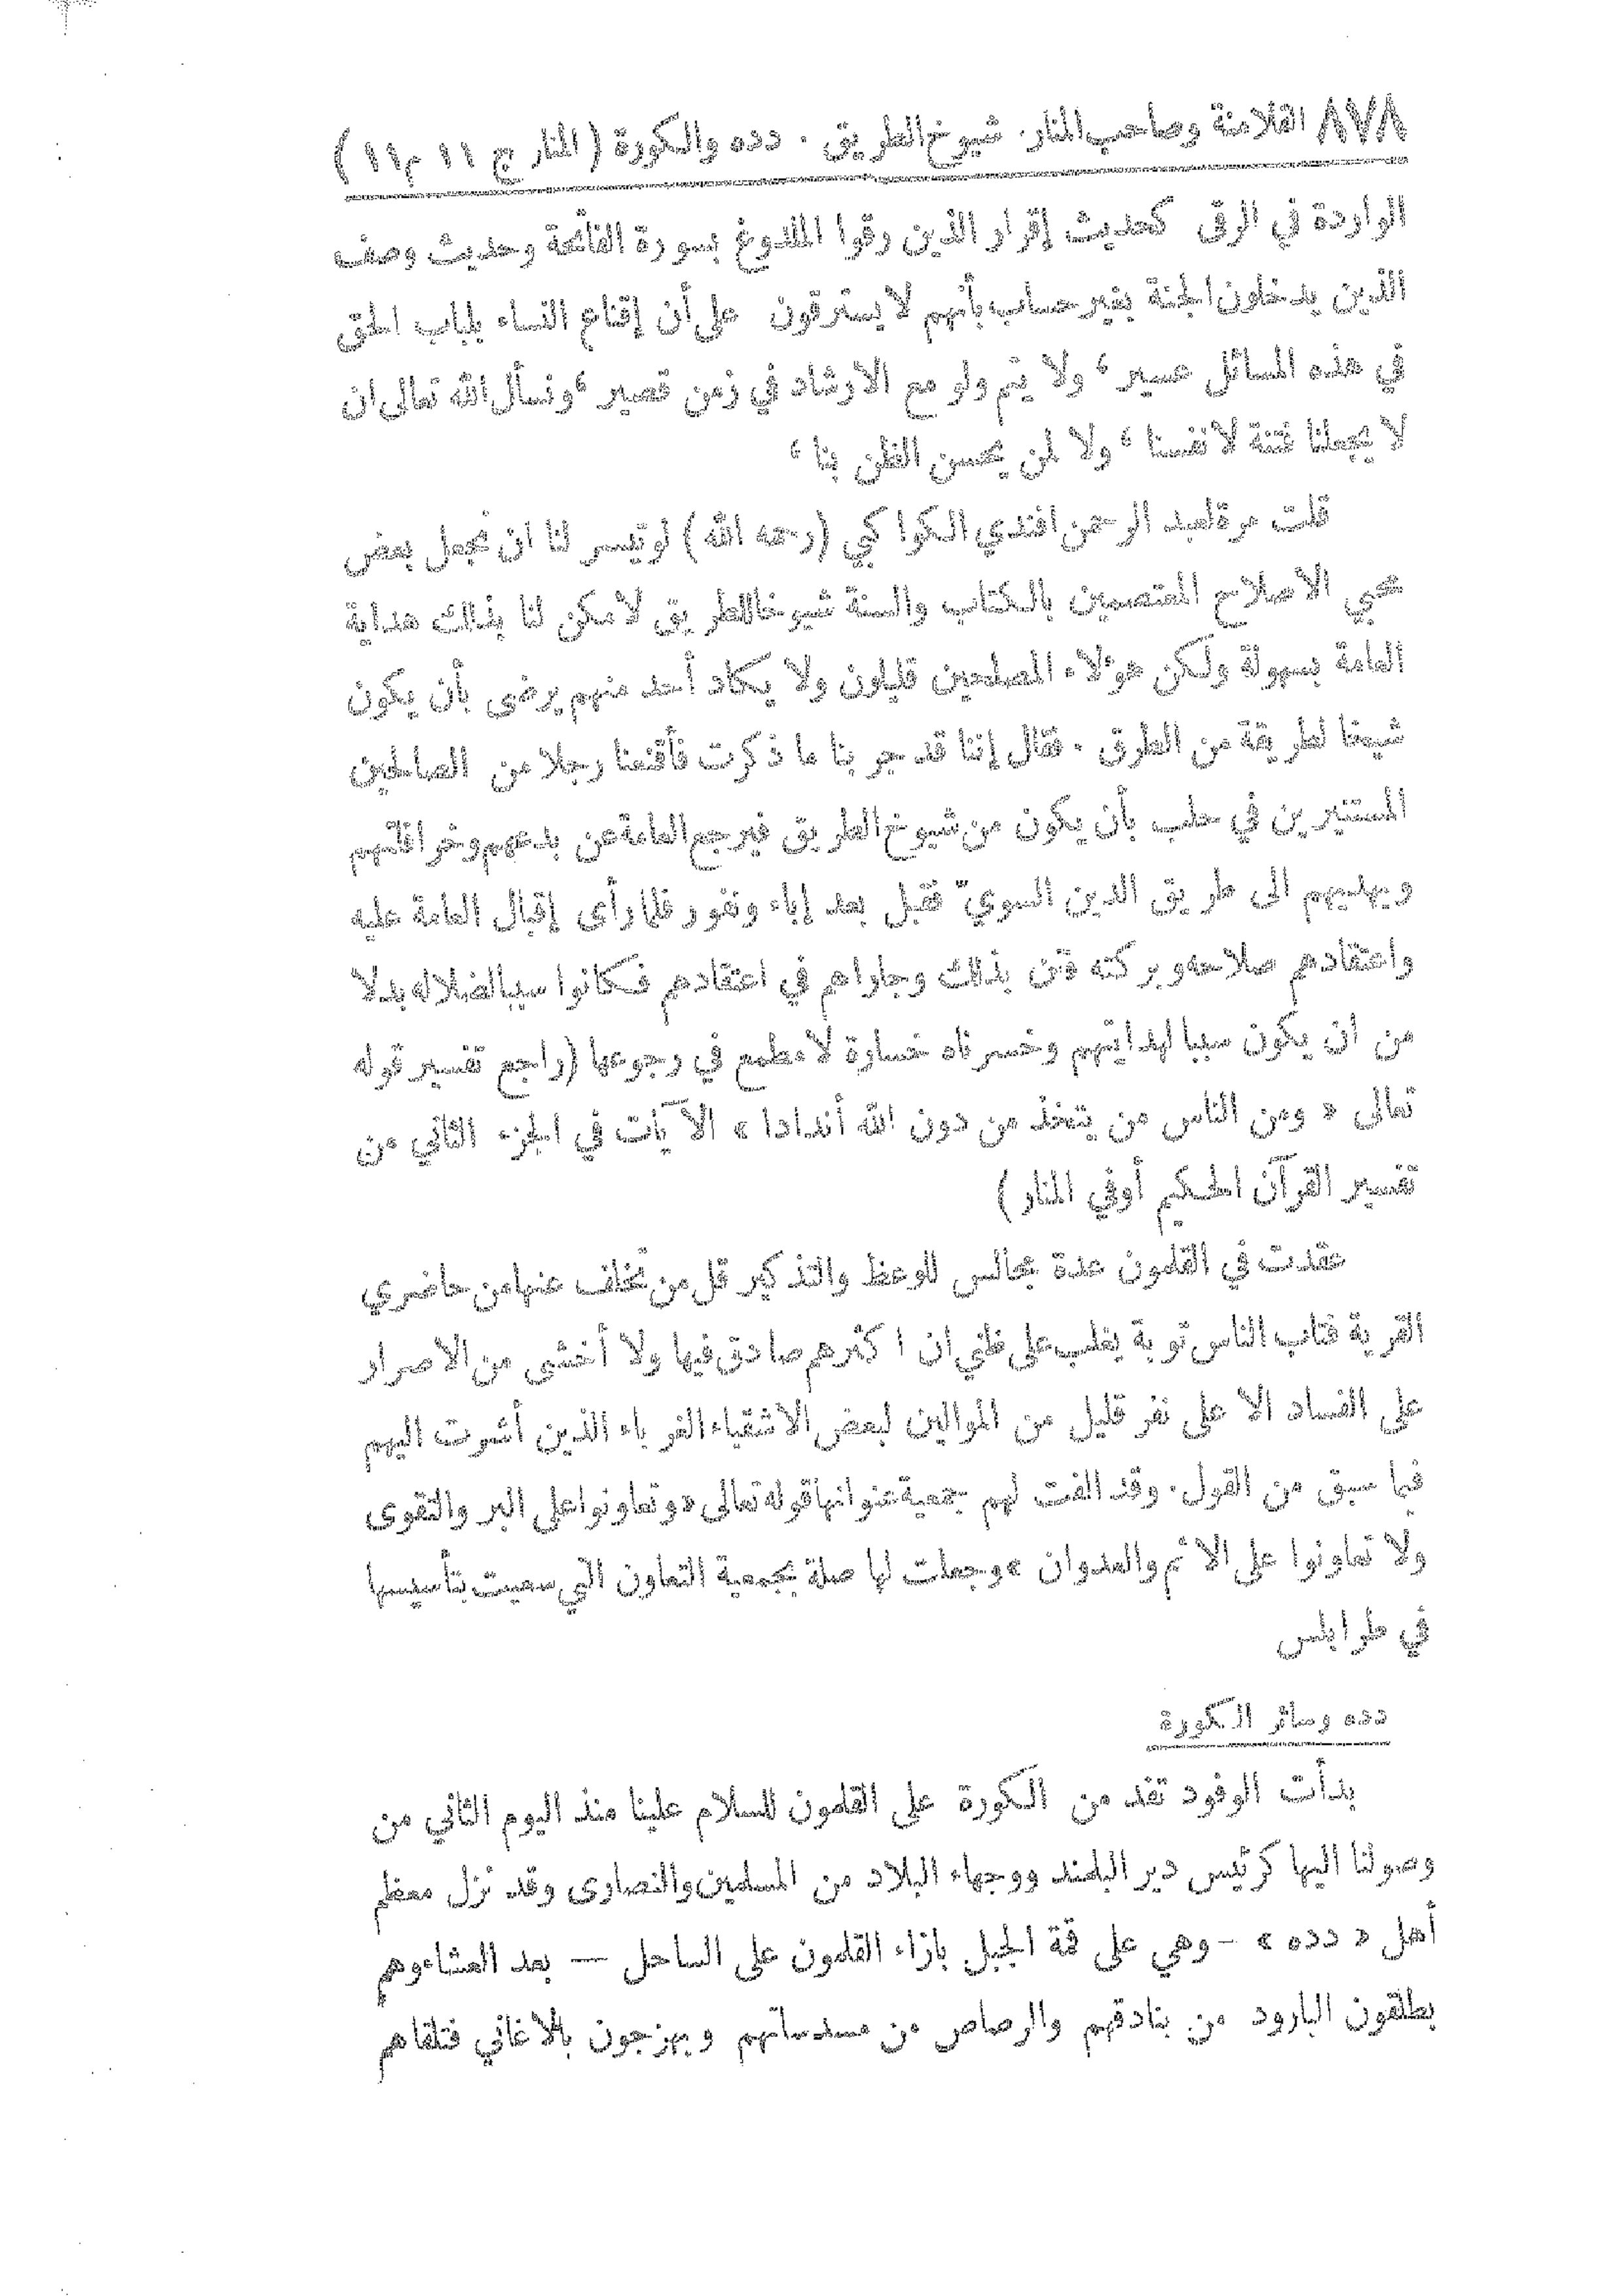 ٨٧٨ القلامنة وصاحب المنار. شيوخ الطريق . دده والكورة (المنار ج ١١ م ١١)
الواردة في الرقى كحديث إقرار الذين رقوا الملدوغ بسورة الفاتحة وحديث وصف
الذين يدخلون الجنة بغير حساب بأنهم لا يسترقون على أن إقناع النساء بلباب الحق
في هذه المسائل عسير ، ولا يتم ولو مع الارشاد في زمن قصير ، ونسأل الله تعالى ان
لا يجعلنا فتنة لانفسنا ، ولا لمن يحسن الظن بنا ،
قلت مرة لعبد الرحمن افندي الكواكبي (رحمه الله) لو تيسر لنا ان نجعل بعض
محبي الاصلاح المعتصمين بالكتاب والسنة شيوخا للطريق لامكن لنا بذلك هداية
العامة بسهولة ولكن هؤلاء المصلحين قليلون ولا يكاد أحد منهم يرضى بأن يكون
شيخا لطريقة من الطرق . فقال إننا قد جربنا ما ذكرت فأقنعنا رجلا من الصالحين
المستنيرين في حلب بأن يكون من شيوخ الطريق فيرجع العامة عن بدعهم وخرافاتهم
ويهديهم الى طريق الدين السويّ فقبل بعد إباء ونفور فلما رأى إقبال العامة عليه
واعتقادهم صلاحه وبركته فتن بذلك وجاراهم في اعتقادهم فكانوا سببا لضلاله بدلا
من ان يكون سببا لهدايتهم وخسرناه خسارة لا مطمع في رجوعها (راجع تفسير قوله
تعالى « ومن الناس من يتخذ من دون الله أندادا » الآيات في الجزء الثاني من
تفسير القرآن الحكيم أو في المنار)
عقدت في القلمون عدة مجالس للوعظ والتذكير قل من تخلف عنها من حاضري
القرية فتاب الناس توبة يغلب على ظني ان اكثرهم صادق فيها ولا أخشى من الاصرار
على الفساد الا على نفر قليل من الموالين لبعض الاشقياء الغرباء الذين أشرت اليهم
فيما سبق من القول . وقد الفت لهم جمعية عنوانها قوله تعالى «وتعاونوا على البر والتقوى
ولا تعاونوا على الاثم والعدوان » وجعلت لها صلة بجمعية التعاون التي سعيت بتأسيسها
في طرابلس
دده وسائر الكورة
بدأت الوفود تفد من الكورة على القلمون للسلام علينا منذ اليوم الثاني من
وصولنا اليها كرئيس دير البلمند ووجهاء البلاد من المسلمين والنصارى وقد نزل معظم
أهل « دده » - وهي على قمة الجبل بازاء القلمون على الساحل — بعد العشاء وهم
يطلقون البارود من بنادقهم والرصاص من مسدساتهم ويهزجون بالاغاني فتلقاهم